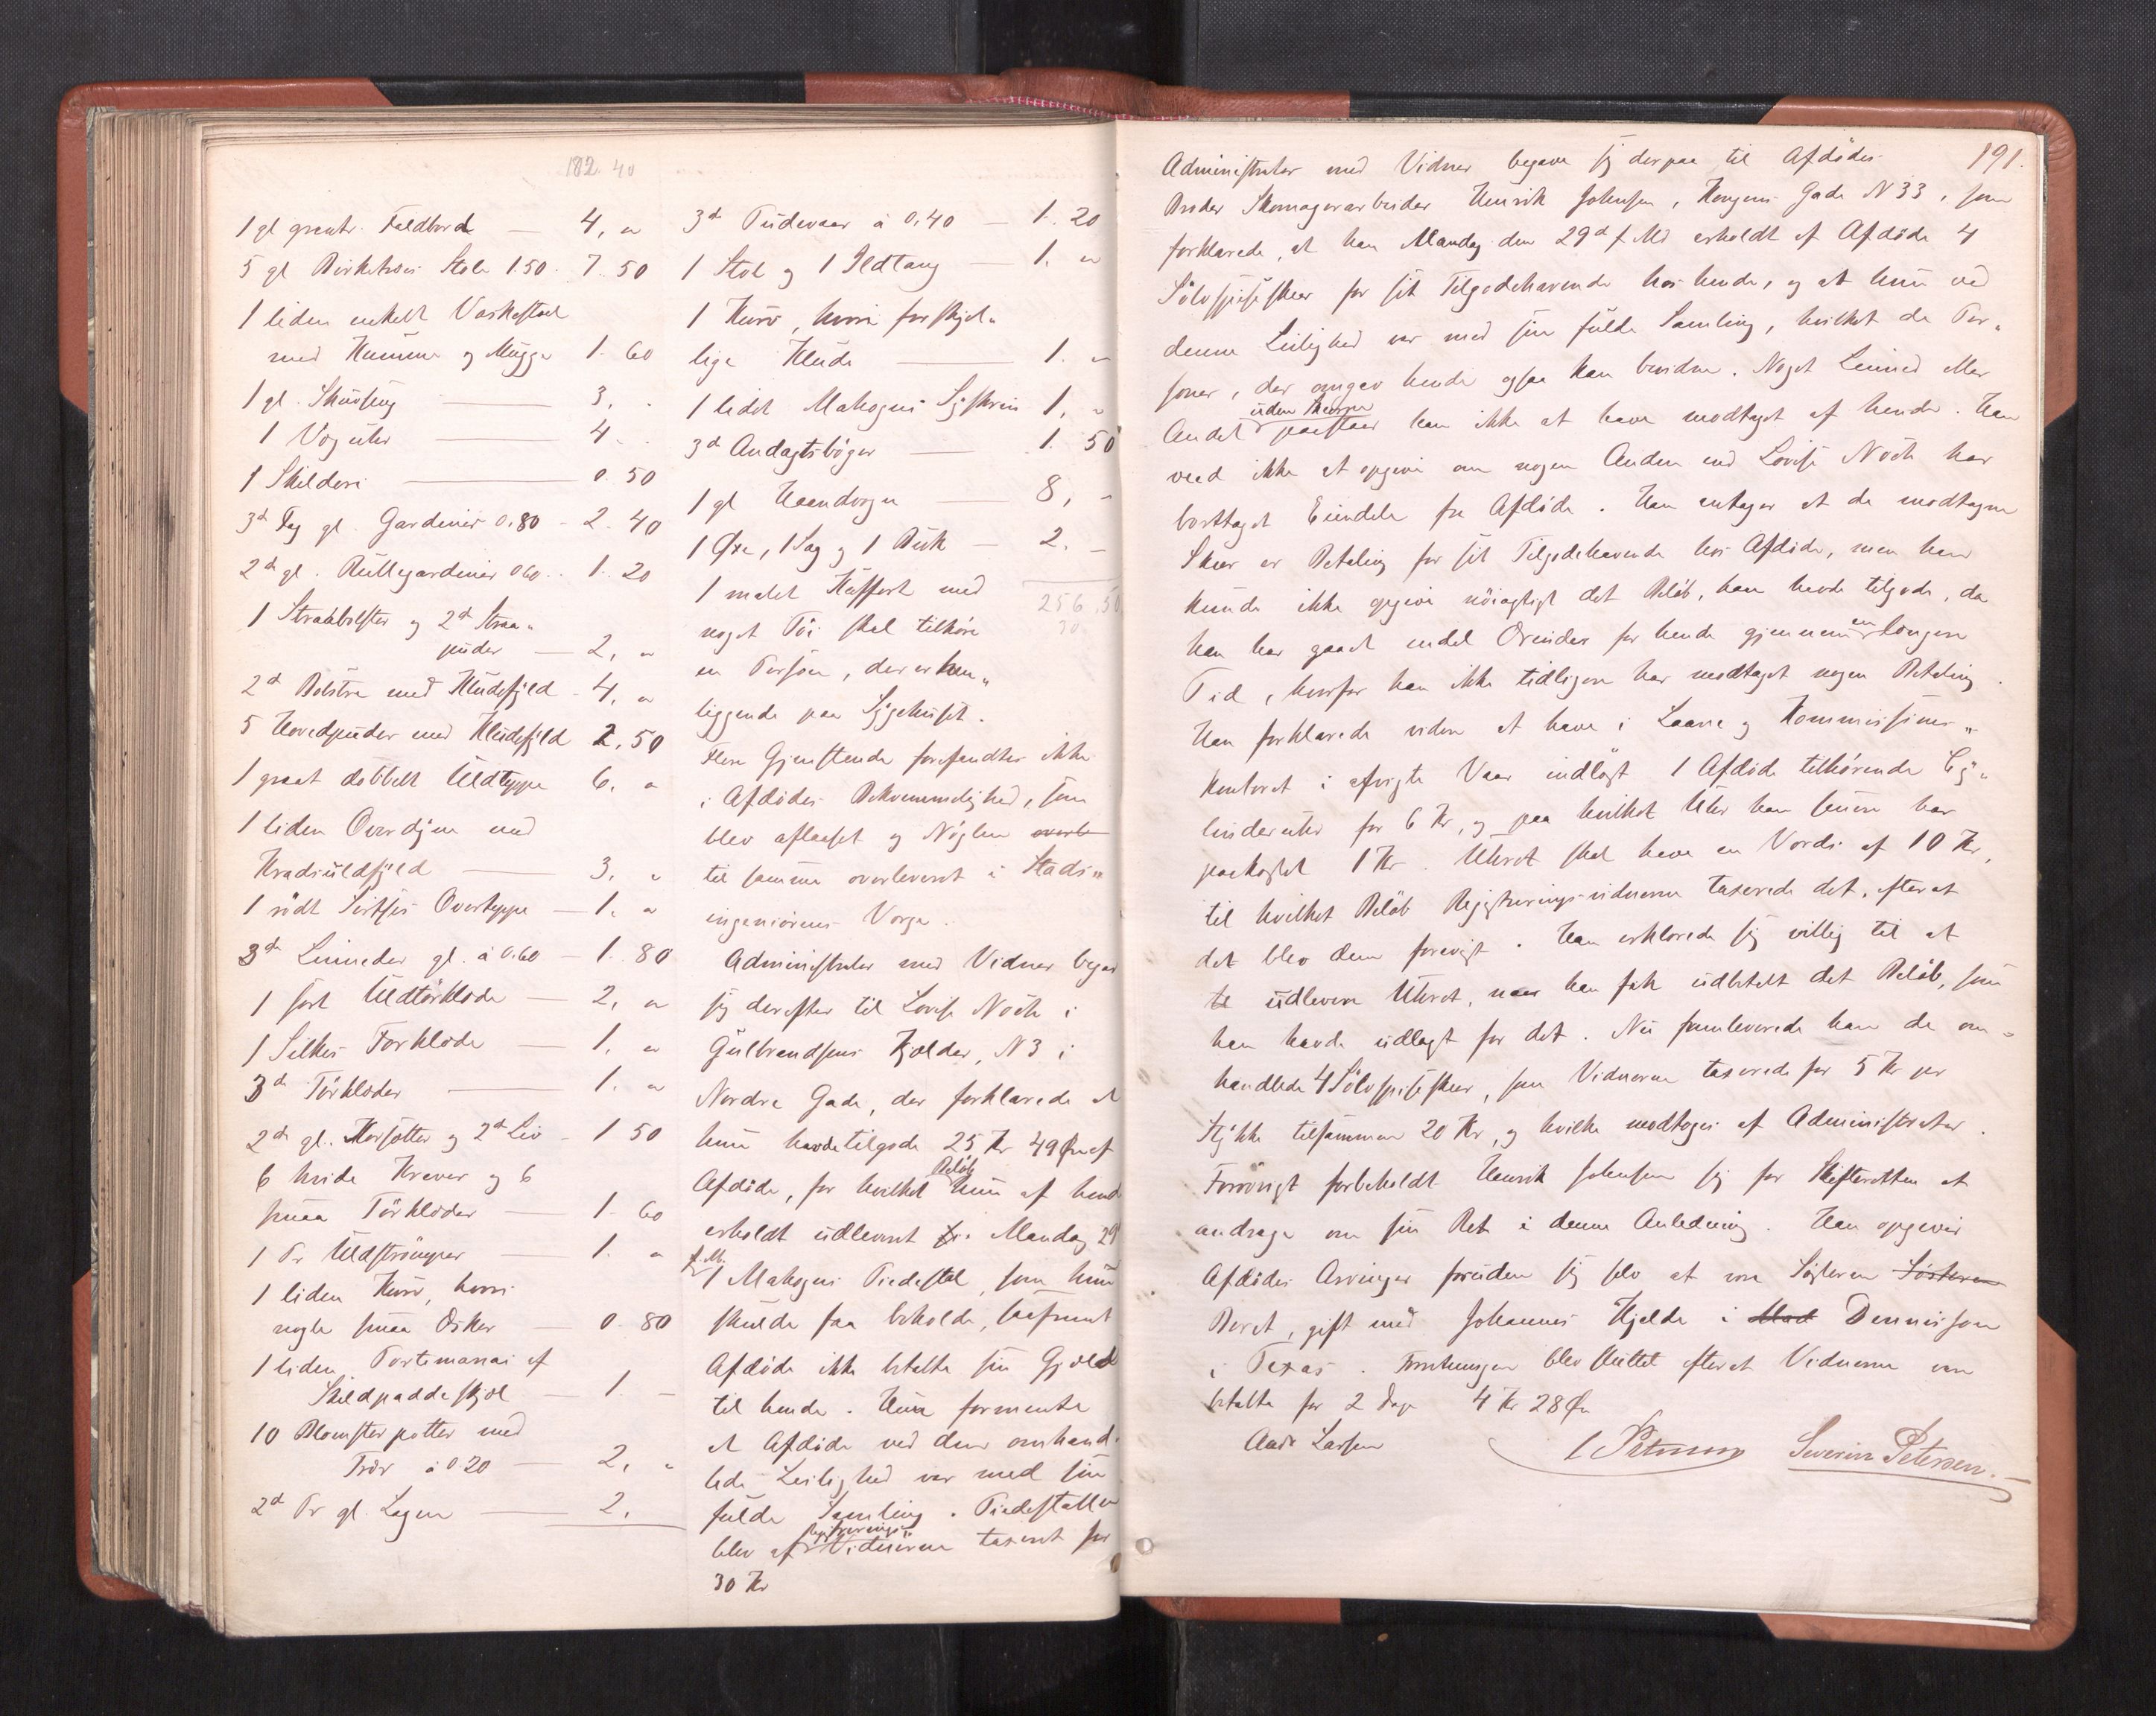 182 40
1 gl grantr. Faldbord — 4, "
5 gl Birketræs Stole 1.50. 7. 50
1 liden enkelt Vaskestol
med Kumme og Mugge 1. 60
1 gl. Skuvseng — 3. "
1 Væguhr — 4 "
1 Skilderi — 0. 50
3de Fag gl. Gardiner 0.80 - 2. 40
2de gl. Rullegardiner 0.60 .. 1. 20
1 Straabolster og 2de Straa„
puder — 2, "
2de Bolstre med Kludefyld - 4, "
5 Hovedpuder med Kludefyld 2,50
1 graat dobbelt Uldteppe 6. "
1 liden Overdyne med
Kraduldfyld — 3. "
1 rødt Sirtses Overteppe — 1. "
3de Linneder gl. à 0.60 — 1. 80
1 sort Uldtørklæde — 2, "
1 Silkes Forklæde — 1. "
3de Tørklæder — 1. "
2de gl. Korsetter og 2de Liv - 1 50
6 hvide Kraver og 6
smaa Tørklæder — 1. 60
1 Pr Uldstrømper — 1. "
1 liden Kurv, hvori
nogle smaa Æsker — 0. 80
1 liden Portemonai af
Skildpaddeskjol — 1. —
10 Blomsterpotter med
Trær à 0.20 — 2. "
2de Pr gl. Lagen — 2.
3de Pudevaar à 0.40 — 1. 20
1 Stol og 1 Ildtang — 1. "
1 Kurv, hvori forskjel„
lige Klude — 1. "
1 lidet Mahogni Syskrin 1, "
3de Andagtsbøger — 1. 50
1 gl Haandvogn — 8, -
1 Øxe, 1 Sag og 1 Buk — 2. -
1 malet Kuffert med 256,50
noget Tøi skal tilhøre 30
en Person, der er hen„
liggende paa Sygehuset.
Flere Gjenstande forefandtes ikke
i Afdødes Bekvemmelighed, som
blev aflaaset og Nøglen overle
til samme overleveret i Stads„
ingeniørens Verge.
Administrator med Vidner begav
sig derefter til Lovise Noch i
Gulbrandsens Kjælder, N 3 i
Nordre Gade, der forklarede at
hun havde tilgode 25 Kr 49 Øre af
Afdøde, for hvilket Beløb hun af hende
erholdt udleveret Mandag 29
f. M. 1 Mahogni Piedestal, som hun
skulde faa beholde, saafremt
Afdøde ikke betalte sin Gjæld
til hende. Hun formente
at Afdøde ved den omhand„
lede Leilighed var med sin
fulde Samling. Piedestallen
blev af Registrerings„Vidnerne taxeret for
30 Kr
191.
Administrator med Vidner begav sig derpaa til Afdødes
Broder Skomagerarbeider Henrik Johnsen, Kongens Gade N 33, som
forklarede, at han Mandag den 29de f. Md erholdt af Afdøde 4
Sølvspiseskeer for sit Tilgodehavende hos hende, og at hun ved
denne Leilighed var med sin fulde Samling, hvilket de Per„
soner, der omgav hende ogsaa kan bevidne. Noget Linned eller
Andet uden Skeerne paastaar han ikke at have modtaget af hende. Han
veed ikke at opgive om nogen Anden end Lovise Noch har
borttaget Eiendele fra Afdøde. Han antager at de modtagne
Skeer er Betaling for sit Tilgodehavende hos Afdøde, men han
kunde ikke opgive nøiagtigt det Beløb, han havde tilgode, da
han har gaaet endel Ærinder for hende gjennem en længere
Tid, hvorfor han ikke tidligere har modtaget nogen Betaling.
Han forklarede videre at have i Laane og Kommissions„
kontoret i afvigte Vaar indløst 1 Afdøde tilhørende Cy„
linderuhr for 6 Kr, og paa hvilket Uhr han senere har
paakostet 1 Kr. Uhret skal have en Værdi af 10 Kr,
til hvilket Beløb Registreringsvidnerne taxerede det, efterat
det blev dem forevist. Han erklærede sig villig til at
te udlevere Uhret, naar han fik udbetalt det Beløb, som
han havde udlagt for det. Nu fremleverede han de om„
handlede 4 Sølvspiseskeer, som Vidnerne taxerede for 5 Kr pr
Stykke tilsammen 20 Kr, og hvilke modtoges af Administrator.
Forøvrigt forbeholdt Henrik Johnsen sig for Skifteretten at
andrage om sin Ret i denne Anledning. Han opgiver
Afdødes Arvinger foruden sig selv at være Søsteren Søsteren
Beret, gift med Johannes Hjelde i Mad Dennisson
i Texas. Forretningen blev sluttet efterat Vidnerne var
betalte for 2 Dage 4 Kr 28 Øre
Aads Larsen Petersen Severin Petersen.